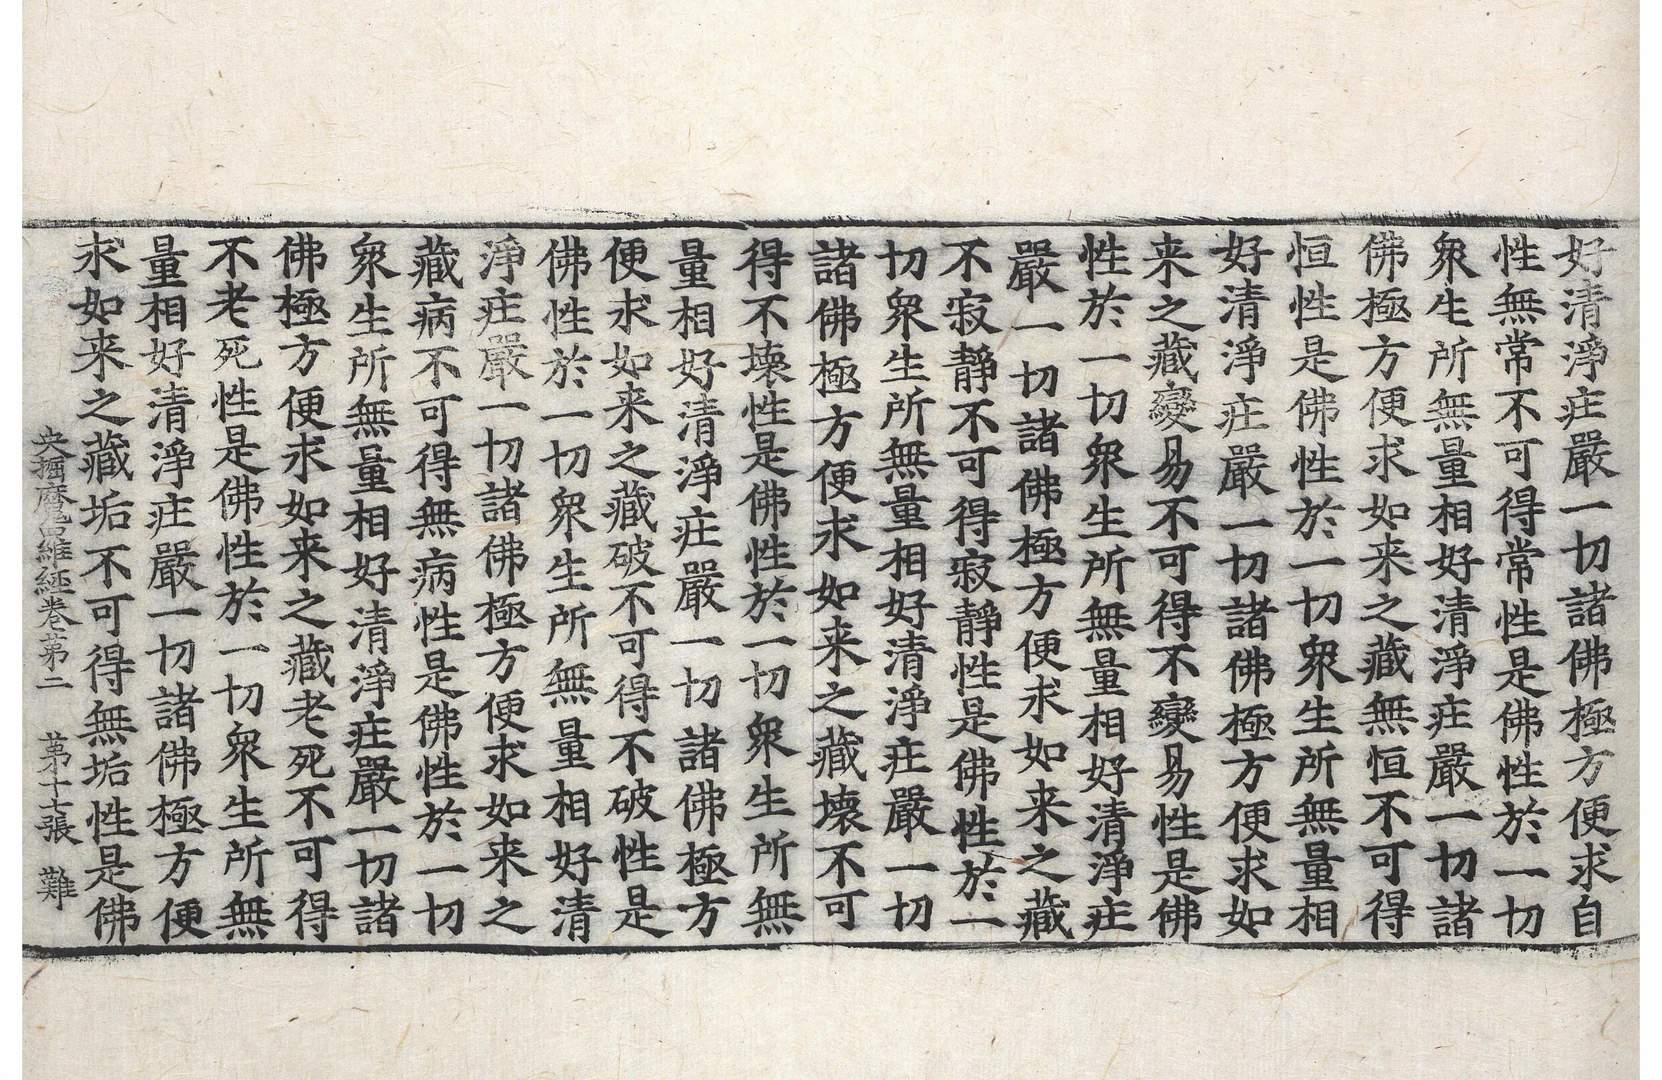 好清淨庄嚴一切諸佛極方便求自
性無常不可得常性是佛性於一切
衆生所無量相好清淨庄嚴一切諸
佛極方便求如来之藏無恒不可得
恒性是佛性於一切衆生所無量相
好清淨庄嚴一切諸佛極方便求如
来之藏變易不可得不變易性是佛
性於一切衆生所無量相好清淨庄
嚴一切諸佛極方便求如来之藏
不寂靜不可得寂靜性是佛性於一
切衆生所無量相好清淨庄嚴一切
諸佛極方便求如来之藏壊不可
得不壊性是佛性於一切衆生所無
量相好清淨庄嚴一切諸佛極方
便求如来之藏破不可得不破性是
佛性於一切衆生所無量相好清
淨庄嚴一切諸佛極方便求如来之
藏病不可得無病性是佛性於一切
衆生所無量相好清淨庄嚴一切諸
佛極方便求如来之藏老死不可得
不老死性是佛性於一切衆生所無
量相好清淨庄嚴一切諸佛極方便
求如来之藏垢不可得無垢性是佛
央掘魔羅經卷第二 第十七張 難